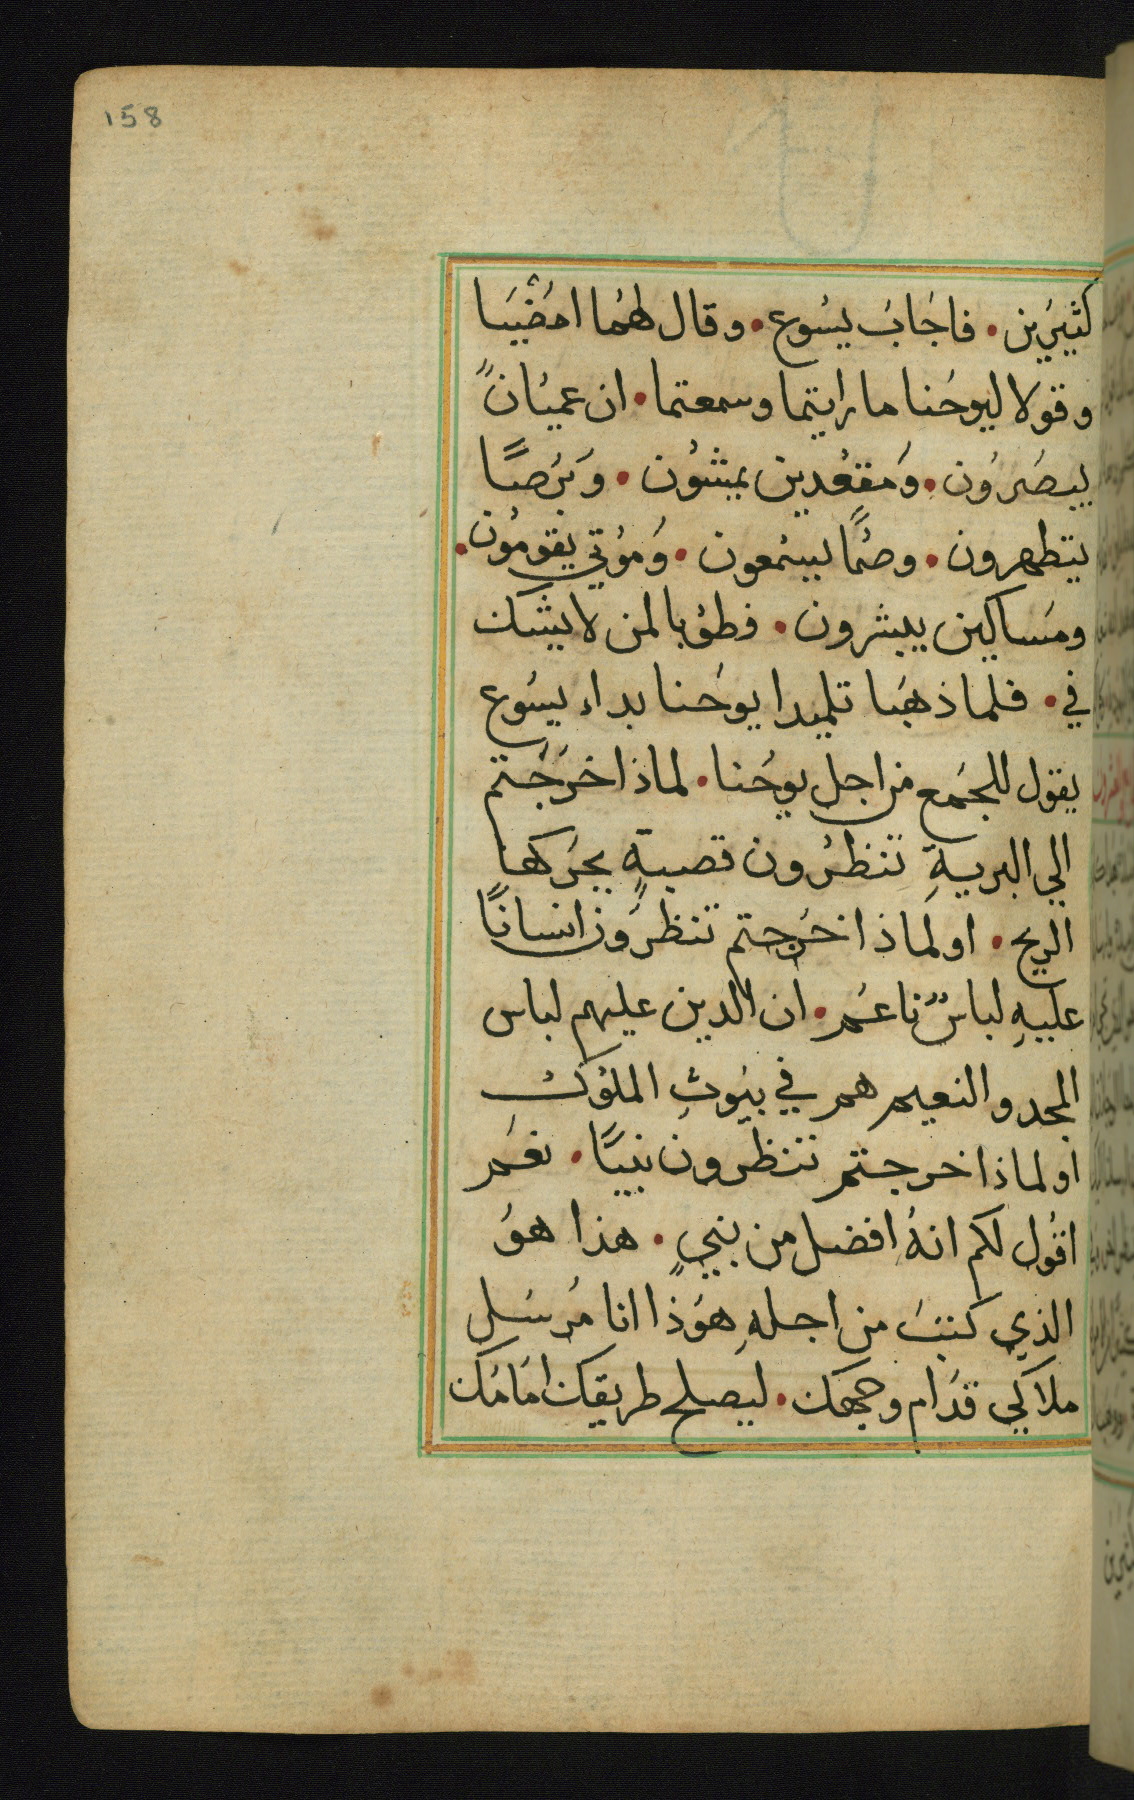 158
كثيرين. فاجاب يسوع. وقال لهما امضيا
وقولا ليوحنا ما رايتما وسمعتما. ان عميانً
يبصرون. ومقعدين يمشون. وبرصًا
يتطهرون. وصمًا يسمعون. وموتي يقومون.
ومساكين يبشرون. فطوبا لمن لا يشك
في. فلما ذهبا تلميدا يوحنا بداء يسوع
يقول للجمع من اجل يوحنا. لماذا خرجتم
الي البريةِ تنظرون قصبةٍ يحركها
الريح. او لماذا خرجتم تنظرون انسانًا
عليهِ لباسٌ ناعم. ان الدين عليهم لباس
المجد والنعيم هم في بيوتِ الملوك
او لماذا خرجتم تنظرون نبيًا. نعم
اقول لكم انهُ افضل من نبيٍ. هذا هو
الذي كتب من اجلهِ هوذا انا مرسل
ملاكي قدام وجهك. ليصلح طريقك امامك